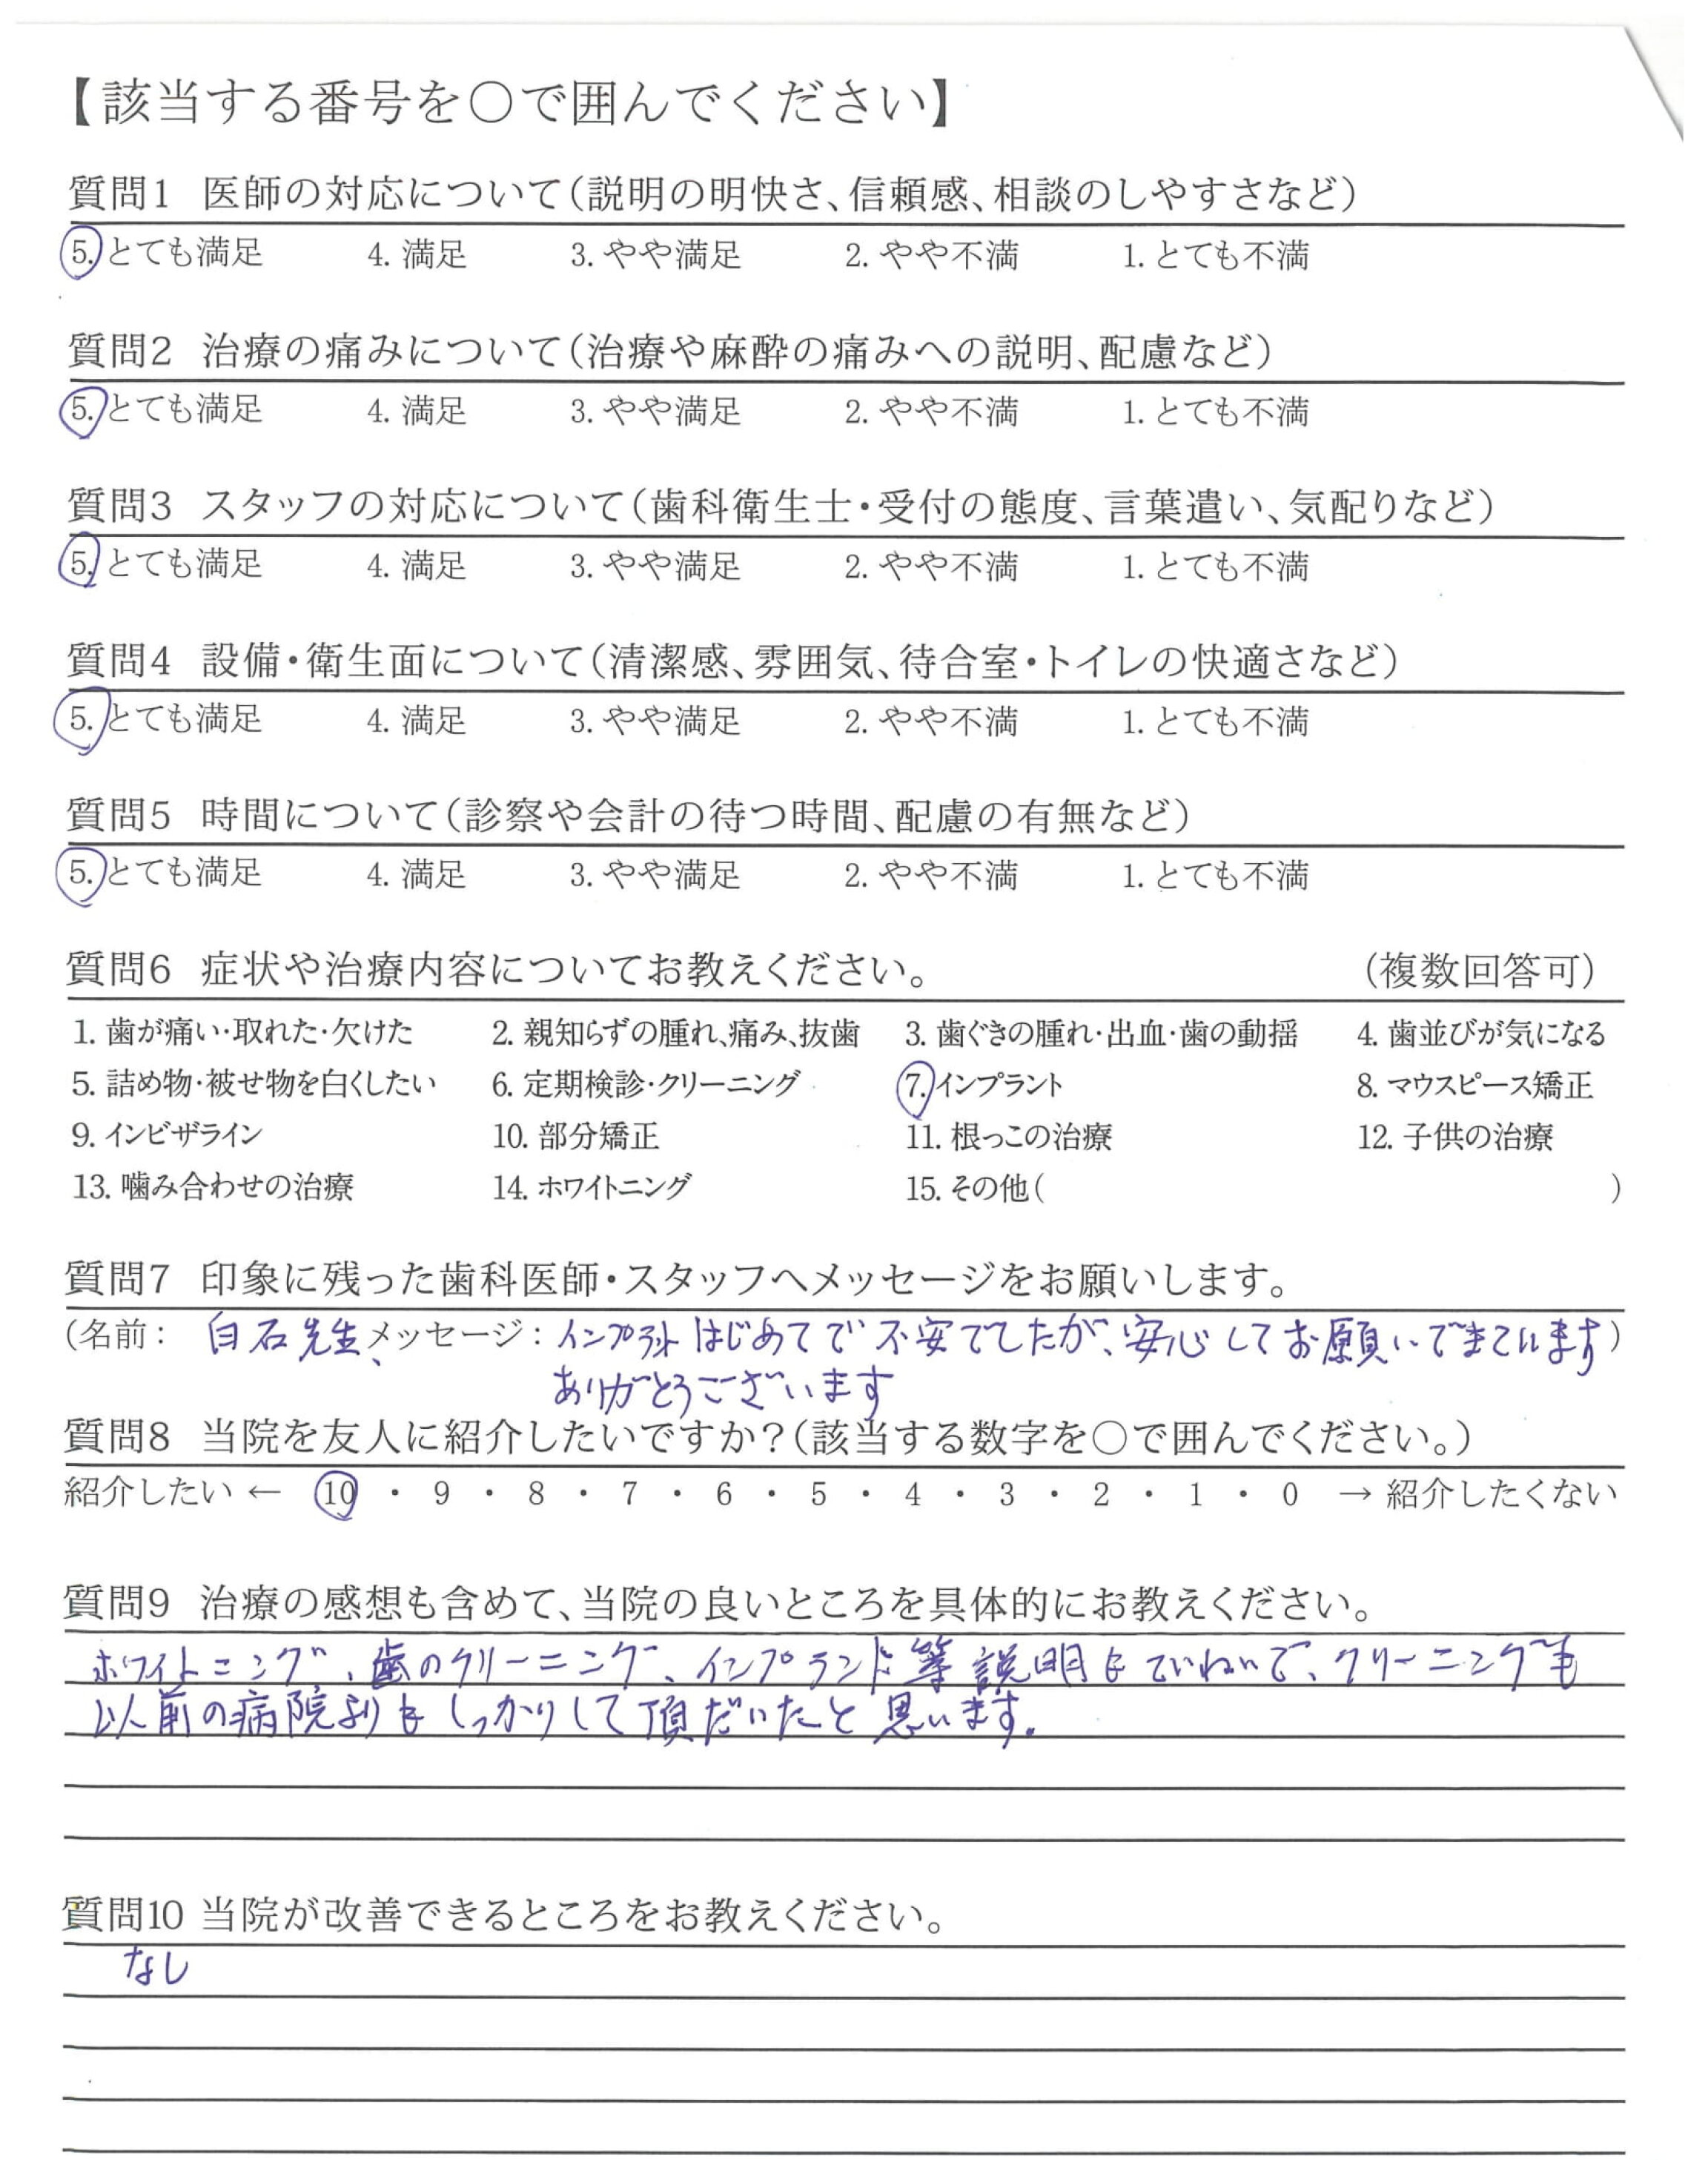 【該当する番号を○で囲んでください】
質問1 医師の対応について(説明の明快さ、信頼感、相談のしやすさなど)
5. とても満足 4. 満足 3. やや満足 2. やや不満 1. とても不満
質問2 治療の痛みについて(治療や麻酔の痛みへの説明、配慮など)
5. とても満足 4. 満足 3. やや満足 2. やや不満 1. とても不満
質問3 スタッフの対応について(歯科衛生士・受付の態度、言葉遣い、気配りなど)
5. とても満足 4. 満足 3. やや満足 2. やや不満 1. とても不満
質問4 設備・衛生面について(清潔感、雰囲気、待合室・トイレの快適さなど)
5. とても満足 4. 満足 3. やや満足 2. やや不満 1. とても不満
質問5 時間について(診察や会計の待つ時間、配慮の有無など)
5. とても満足 4. 満足 3. やや満足 2. やや不満 1. とても不満
質問6 症状や治療内容についてお教えください。 (複数回答可)
1. 歯が痛い・取れた・欠けた 2. 親知らずの腫れ、痛み、抜歯 3. 歯ぐきの腫れ・出血・歯の動揺 4. 歯並びが気になる
5. 詰め物・被せ物を白くしたい 6. 定期検診・クリーニング 7. インプラント 8. マウスピース矯正
9. インビザライン 10. 部分矯正 11. 根っこの治療 12. 子供の治療
13. 噛み合わせの治療 14. ホワイトニング 15. その他( )
質問7 印象に残った歯科医師・スタッフへメッセージをお願いします。
(名前: 白石先生、メッセージ: インプラント はじめてで 不安でしたが、安心してお願いできています)
ありがとうございます
質問8 当院を友人に紹介したいですか?(該当する数字を○で囲んでください。)
紹介したい ← 10 ・ 9 ・ 8 ・ 7 ・ 6 ・ 5 ・ 4 ・ 3 ・ 2 ・ 1 ・ 0 → 紹介したくない
質問9 治療の感想も含めて、当院の良いところを具体的にお教えください。
ホワイトニング、歯のクリーニング、インプラント等 説明もていねいで、クリーニングも
以前の病院よりも しっかりして頂だいたと思います。
質問10 当院が改善できるところをお教えください。
なし